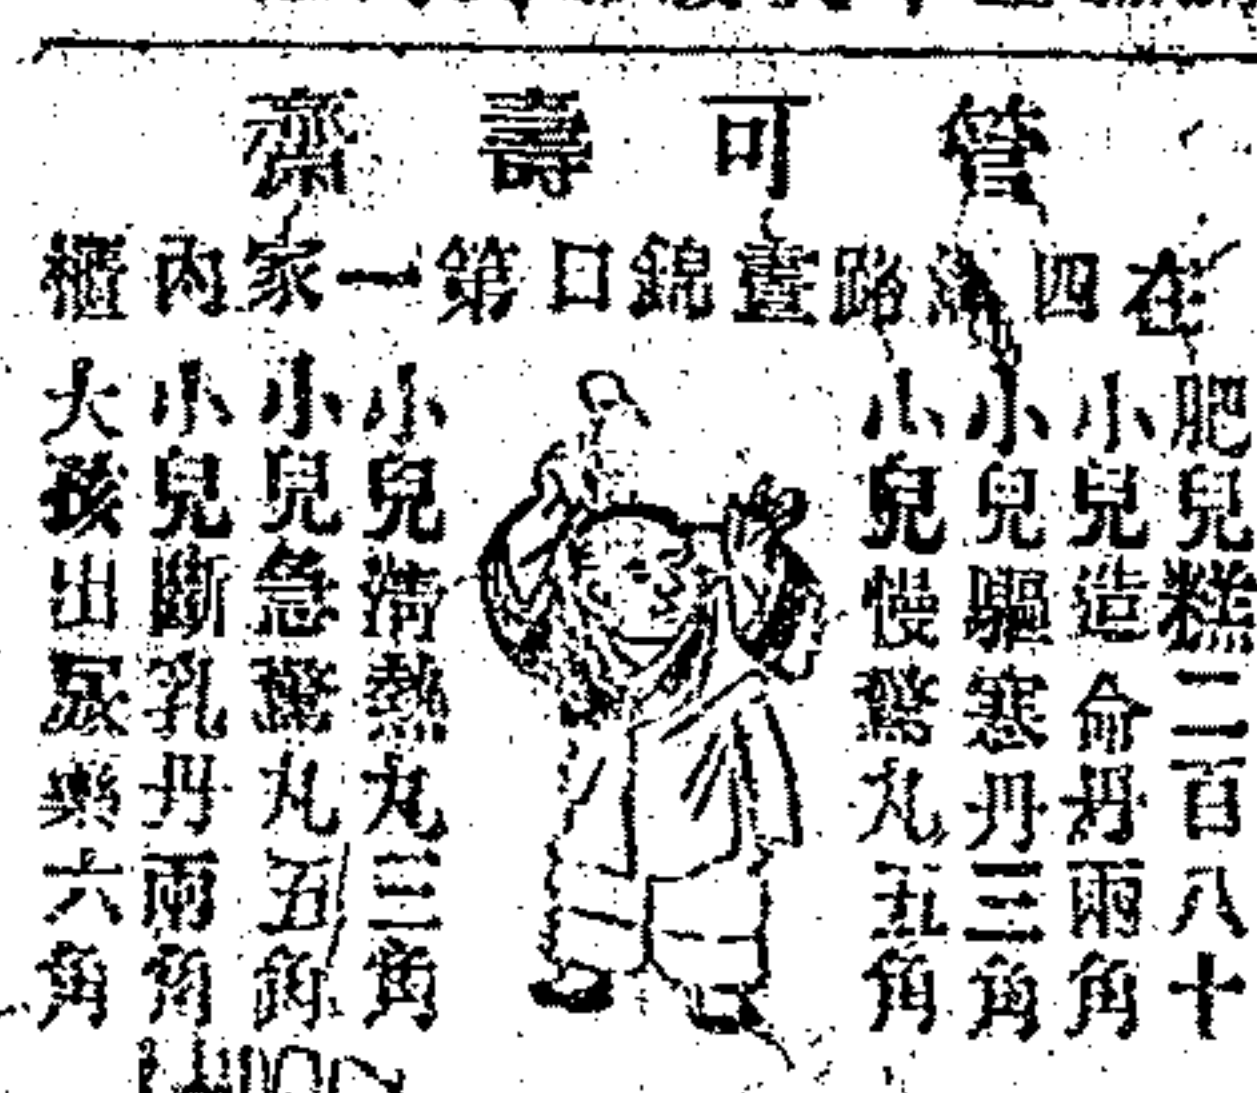 管可壽齋
在四馬路晝錦口第一家內櫃
肥兒糕二百八十
小兒造命丹兩角
小兒驅寒丹三角
小兒慢驚丸五角
小兒清熱丸三角
小兒急驚丸五角
小兒斷乳丹兩角
大孩出尿藥六角